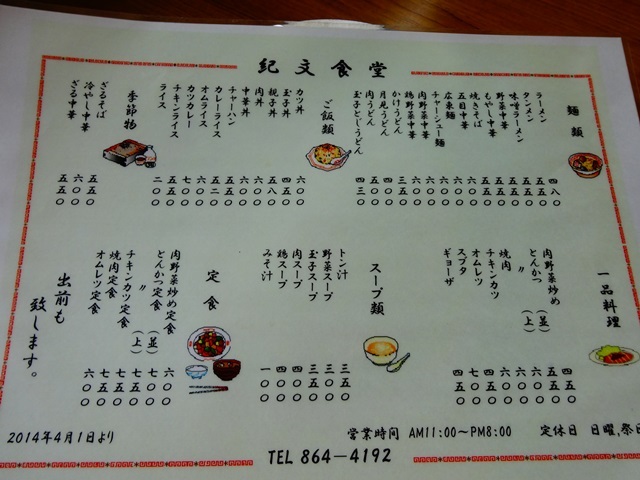 紀文食堂
麺類
ラーメン 四八〇
タンメン 五五〇
味噌ラーメン 五五〇
野菜中華 五五〇
もやし中華 五五〇
焼きそば 五五〇
五目中華 六〇〇
広東麺 六〇〇
チャーシュー麺 六〇〇
肉野菜中華 六〇〇
鶏野菜中華 六〇〇
かけうどん 三五〇
月見うどん 四〇〇
肉うどん 五〇〇
玉子とじうどん 四三〇
ご飯類
カツ丼 六〇〇
玉子丼 四五〇
親子丼 五八〇
肉丼 五五〇
中華丼 六〇〇
チャーハン 五〇〇
カレーライス 五二〇
オムライス 六〇〇
カツカレー 七〇〇
チキンライス 五五〇
ライス 二〇〇
季節物
ざるそば 五五〇
冷やし中華 六〇〇
ざる中華 五五〇
一品料理
肉野菜炒め 四五〇
とんかつ (並) 五五〇
〃 (上) 六〇〇
焼肉 六〇〇
チキンカツ 六〇〇
オムレツ 四〇〇
スブタ 五〇〇
ギョーザ 四五〇
スープ類
トン汁 三五〇
野菜スープ 三〇〇
玉子スープ 三五〇
肉スープ 四〇〇
鶏スープ 四〇〇
みそ汁 一〇〇
定食
肉野菜炒め定食 六〇〇
とんかつ定食 (並) 七〇〇
〃 (上) 七五〇
チキンカツ定食 七五〇
焼肉定食 七五〇
オムレツ定食 六〇〇
出前も
致します。
2014年4月1日より
営業時間 AM11:00〜PM8:00 定休日 日曜,祭日
TEL 864-4192